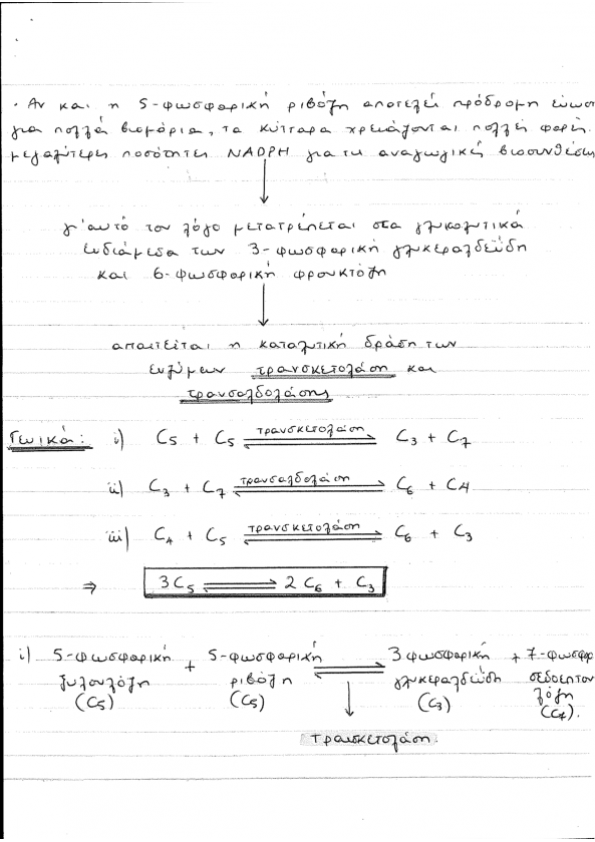 · Αν και η 5-φωσφορική ριβόζη αποτελεί πρόδρομη ένωσ
για πολλά βιομόρια, τα κύτταρα χρειάζονται πολλές φορές
μεγαλύτερες ποσότητες NADPH για τις αναγωγικές βιοσυνθέσει
γι'αυτό τον λόγο μετατρέπεται στα γλυκολυτικά
ενδιάμεσα των 3-φωσφορική γλυκεραλδεΰδη
και 6-φωσφορική φρουκτόζη
απαιτείται η καταλυτική δράση των
ενζύμων τρανσκετολάση και
τρανσαλδολάσης
Γενικά: i) C5 + C5 τρανσκετολάση C3 + C7
ii) C3 + C7 τρανσαλδολάση C6 + C4
iii) C4 + C5 τρανσκετολάση C6 + C3
⇒ 3C5 ⇌ 2C6 + C3
i) 5-φωσφορική + 5-φωσφορική ⇌ 3 φωσφορική + 7-φωσφορ
ξυλουλόζη ριβόζη γλυκεραλδεΰδη σεδοεπτου
(C5) (C5) (C3) λόζη
(C7).
τρανσκετολάση